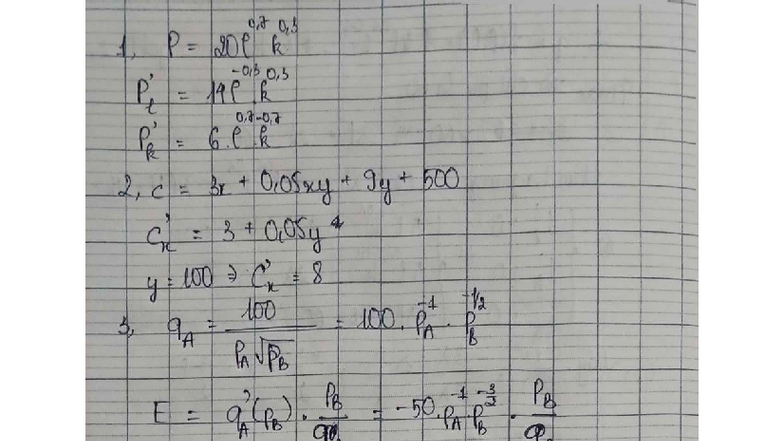 1, P = 20 l^0,7 k^0,3
P'_l = 14 l^-0,3 k^0,3
P'_k = 6. l^0,7 k^-0,7
2, c = 3x + 0,05xy + 9y + 500
C'_x = 3 + 0,05y
y = 100 ⇒ C'_x = 8
3, q_A = 100 / (P_A √P_B) = 100. P_A^-1 . P_B^-1/2
E = q'_A (P_B) . P_B / q = -50. P_A^-1 . P_B^-3/2 . P_B / q